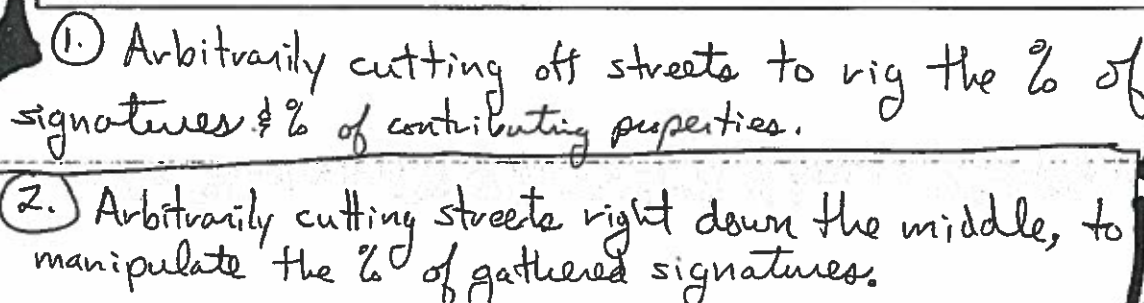 1. Arbitrarily cutting off streets to rig the % of
signatures & % of contributing properties.
2. Arbitrarily cutting streets right down the middle, to
manipulate the % of gathered signatures.